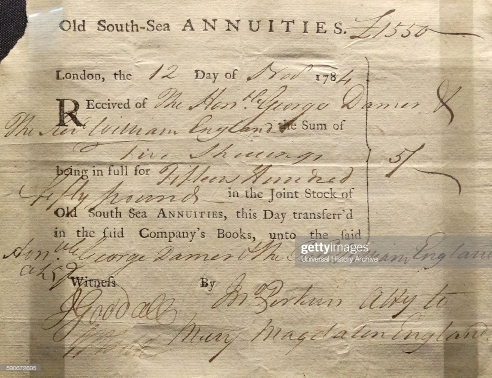 Old South-Sea ANNUITIES. £1550
London, the 12 Day of Nov 1784
REceived of The Honble George Damer &
The Revd William England the Sum of
Five Shillings 5/
being in full for Fifteen Hundred
Fifty pounds in the Joint Stock of
Old South-Sea ANNUITIES, this Day transferr'd
in the said Company's Books, unto the said
Honble George Damer & The William England
Witness By Jno Perkins Atty to
J Goodall Mary Magdalen England
gettyimages
Universal History Archive
590672695